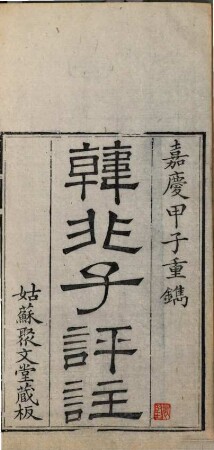 嘉慶甲子重鐫
韓非子評註
姑蘇聚文堂藏板